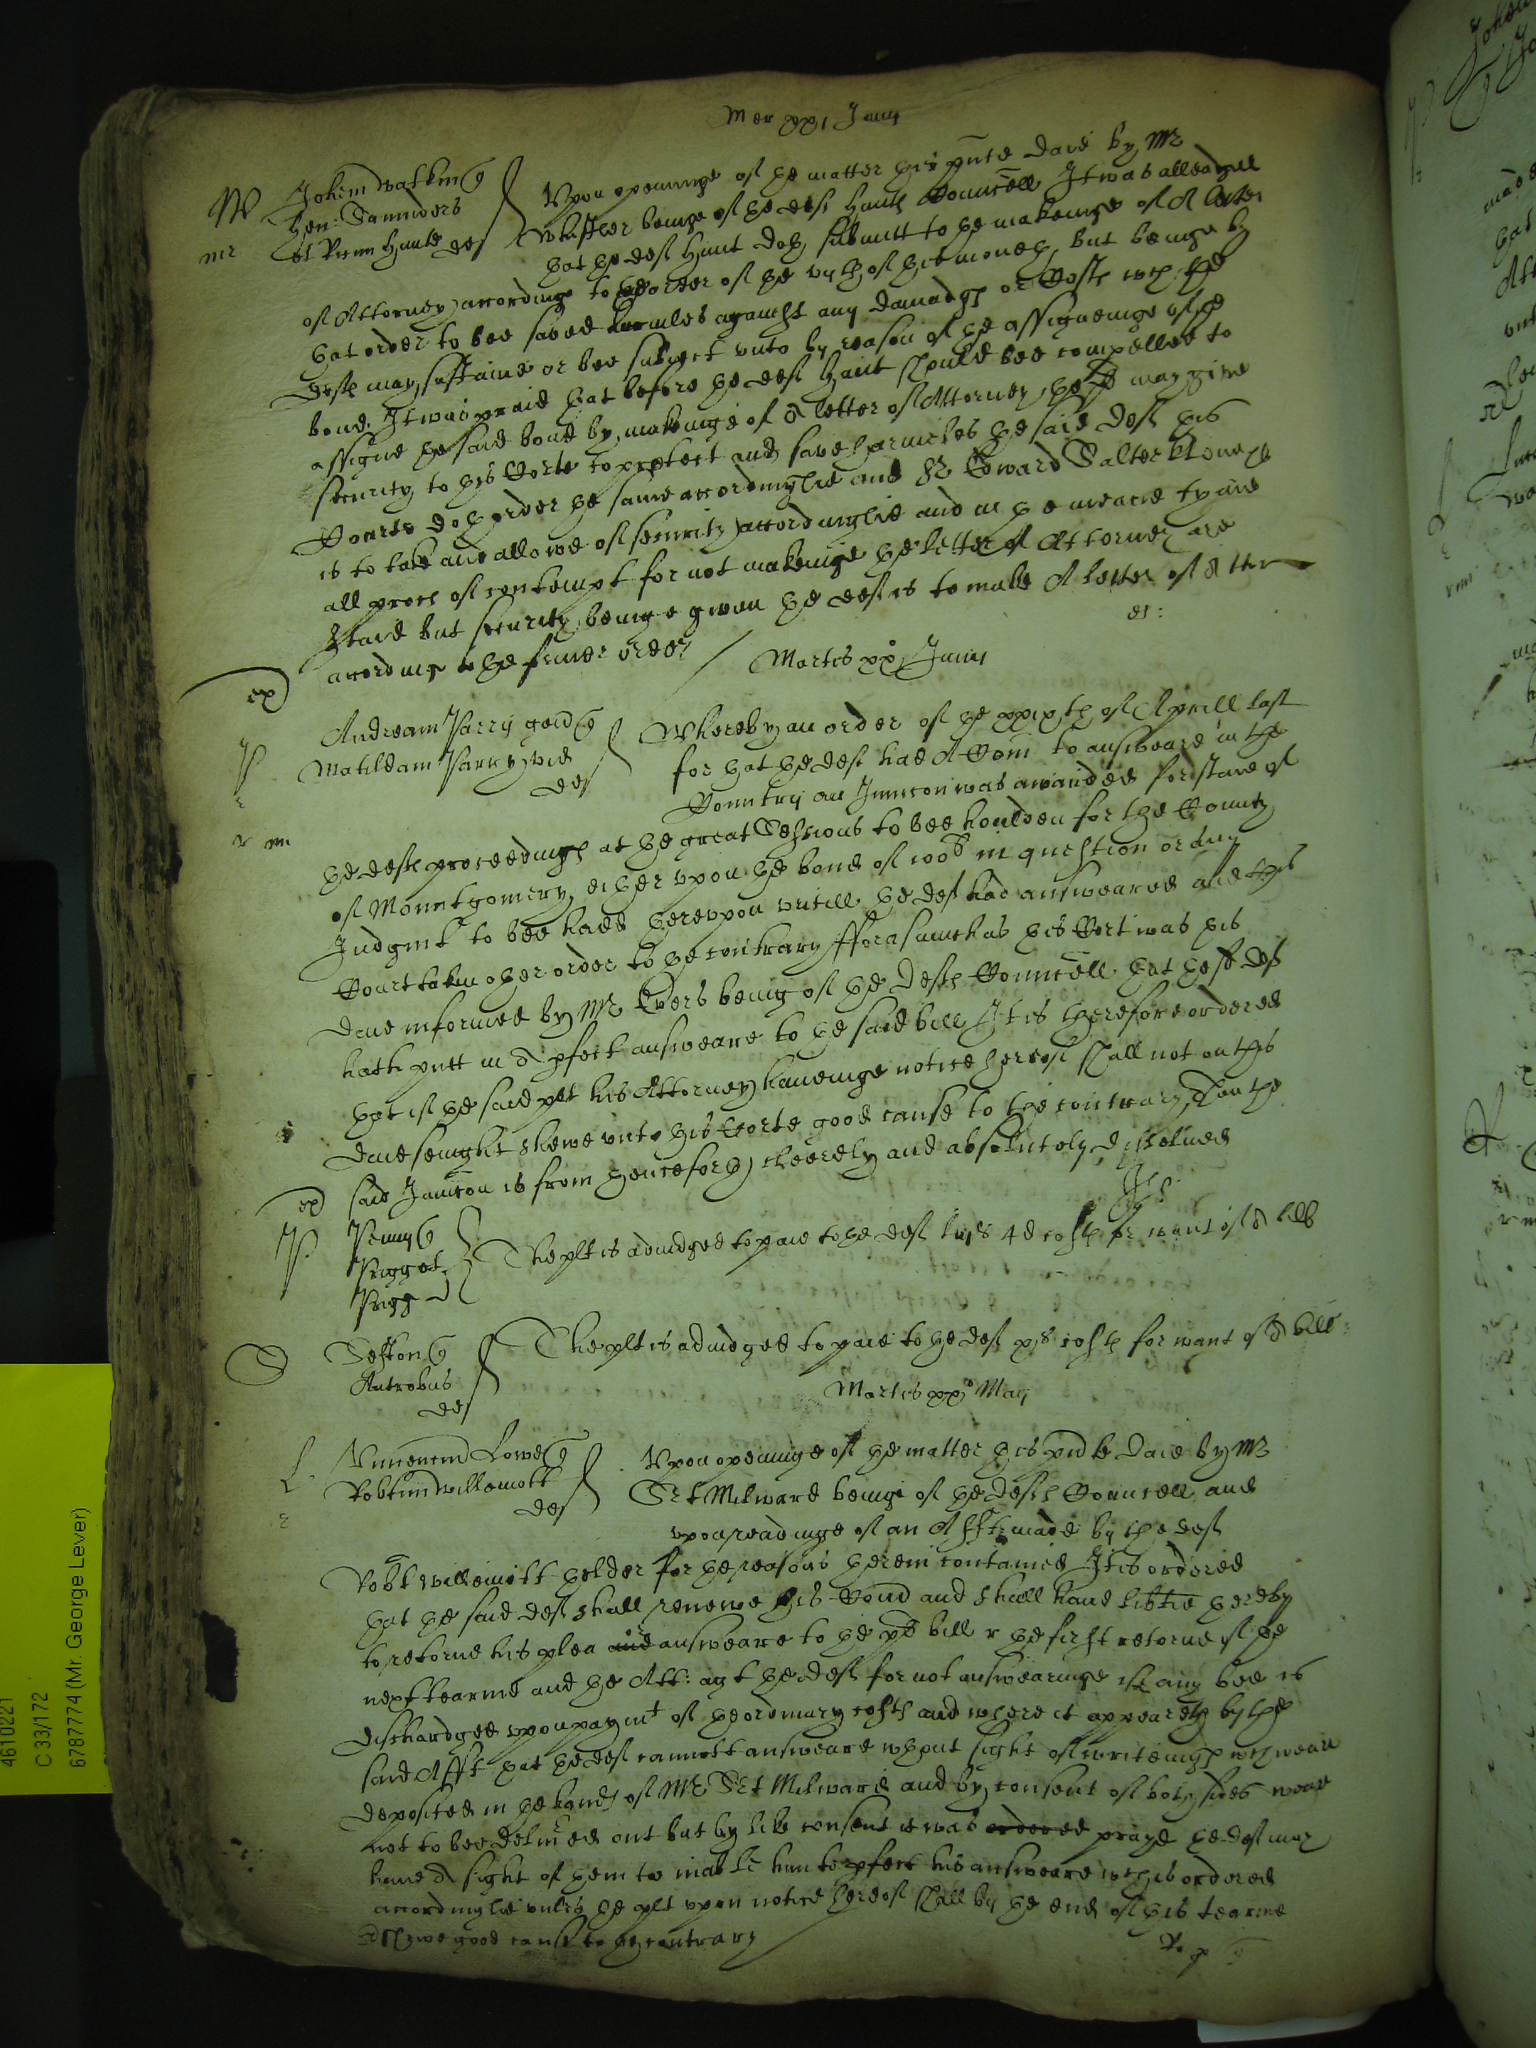 Mer xxi Junij
W Johem Watkin q
Hen: Saunders
et Ricum Hunte def
mr
Upon openinge of the matter this pnte daie by Mr
Whistler beinge of the def Hunts Councell It was alleadged
that the def Hunt doth submitt to the makeinge of A letter
of Attorney accordinge to the order of the of his money, but beinge by
that order to bee saved harmles against any damadge or Costs wch the
deft may sustaine or bee subiect unto by reason of the assigneinge of the
bond. It was praid that before the def Hunt should bee compelled to
assigne the said bond by makeinge of a letter of Attorney, the plt may give
security to this Corte to protect and save harmeles the said def this
Courte doth order the same accordinglie and Sr Edward Salter knight
is to take and allowe of security accordinglie and in the meane tyme
all proces of contempt for not makeinge the letter of Attorney are
staid but security beinge given the def is to make A letter of Atter
accordinge to the former order
Martis xx Junij
ex
P Andream Parry gen q
Matildam Parry vid
def
Whereby an order of the xxixth of Aprill last
for that the def had A Comi to answeare in the
Country an Inuncon was awarded for staie of
the defts proceedings at the great Sessions to bee houlden for the County
of Mountgomery, either upon the bond of in question or any
Judgmt to bee haed thereupon untill the def had answeared and this
Court taken other order to the contrary fforasmuch as this Cort was this
daie informed by Mr Evers being of the Defts Councell that the sd def
hath putt in A pfect answeare to the said bill It is therefore ordered
that if the said plt his Attorney haveinge notice hereof shall not on this
daie senight shewe unto this Corte good cause to the contrary, Then the
said Iuncon is from henceforth cleerely and absolutely dissolved
ex
P Penny q
Piggot
Prigg d
The plt is adiudged to paie to the def 4d costs for want of A bill
S Sefton q
Antrobus
def
The plt is adiudged to paie to the def xxs costs for want of A bill
Martis xxo Maij
L Vincencm Lowe q
Robtum Willemott
def
Upon openinge of the matter this pnte daie by Mr
Sct Milward beinge of the defts Councell and
upon readinge of an Afft made by the def
Robt Willemott thelder for the reasons therein contained It is ordered
that the said def shall renewe his Comd and shall have libtie thereby
to retorne his plea and answeare to the plts bill the first retorne of the
next tearme and the Att: agt the def for not answearinge if any bee is
dischardged upon paymt of the ordinary costs and where it appeareth by the
said Afft that the def cannott answeare wthout sight of writeings wch weare
deposited in the hands of Mr Sct Milward and by consent of both sides weare
not to bee delivered out but by like consent it was ordered prayd the def may
have A sight of them to inable him to pfect his answeare wch is ordered
accordinglie unles the plt upon notice hereof shall by the end of this tearme
shewe good cause to the contrary
4610221
C 33/172
6787774 (Mr. George Lever)